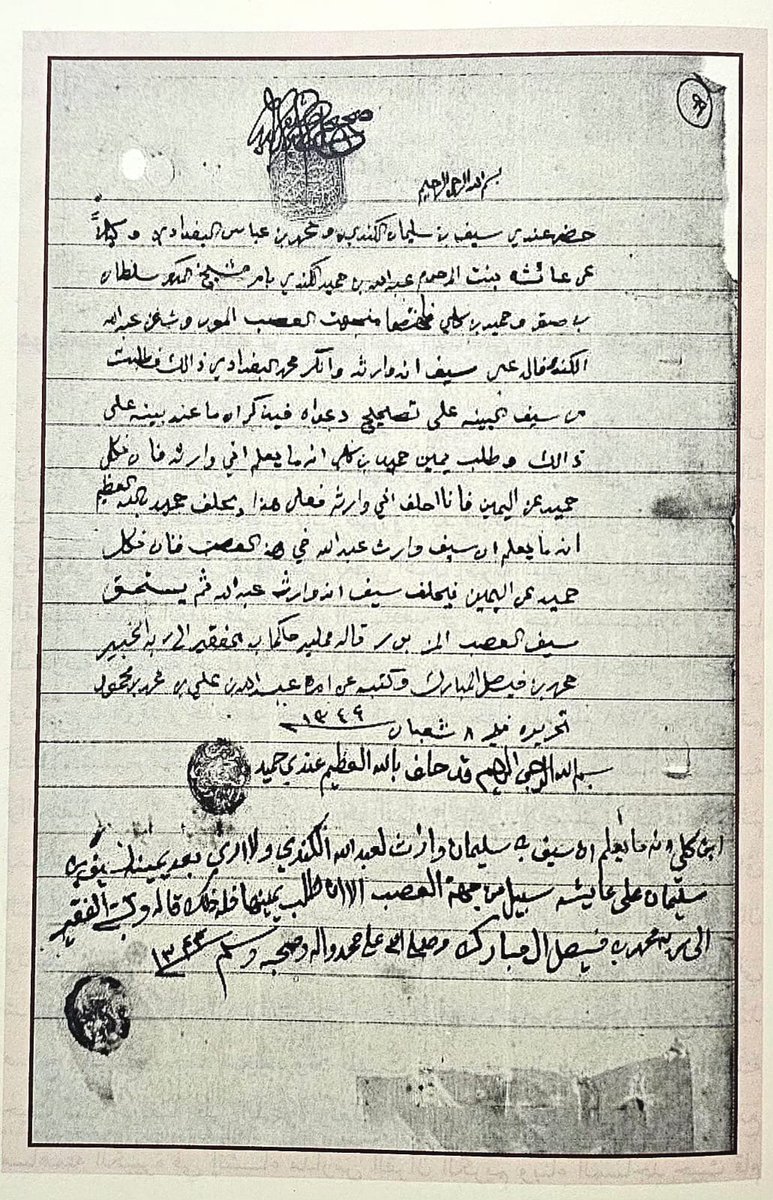 بسم الله الرحمن الرحيم
حضر عندي سيف بن سليمان الكندي و محمد بن عباس البغدادي وكيلاً
عن عائشه بنت المرحوم عبدالله بن حميد الكندي بامر سلطان
بن صقر وحميد بن كلي من جهت العصب عبدالله
الكندي فقال سيف انه وارثه وانكر محمد البغدادي ذالك فطلبت
من سيف البينه على تصحيح دعواه فذكر ان ما عنده بينه على
ذالك وطلب يمين حميد بن كلي انه ما يعلم اني وارثه فان نكل
حميد عن اليمين فانا احلف اني وارثه فعلى هذا يحلف حميد بالله العظيم
انه ما يعلم ان سيف وارث عبدالله في هذا العصب فان نكل
حميد عن اليمين فيحلف سيف انه وارث عبدالله ثم يستحق
سيف العصب قاله الفقير الى ربه الخبير
محمد بن فيصل المبارك وكتبه عن امره عبدالله بن علي بن محمد بن محمود
تحريره في ٨ شعبان
بسم الله الرحمن الرحيم قد حلف بالله العظيم عندي حميد
ابن كلي انه ما يعلم ان سيف بن سليمان وارث لعبدالله الكندي ولا ارى بعد يمينه لسيف بن
سليمان على عايشه سبيل من جهة العصب الا ان طلب يمينها فله ذلك قاله وكتبه الفقير
الى ربه محمد بن فيصل ال مبارك وصلى الله على محمد واله وصحبه وسلم